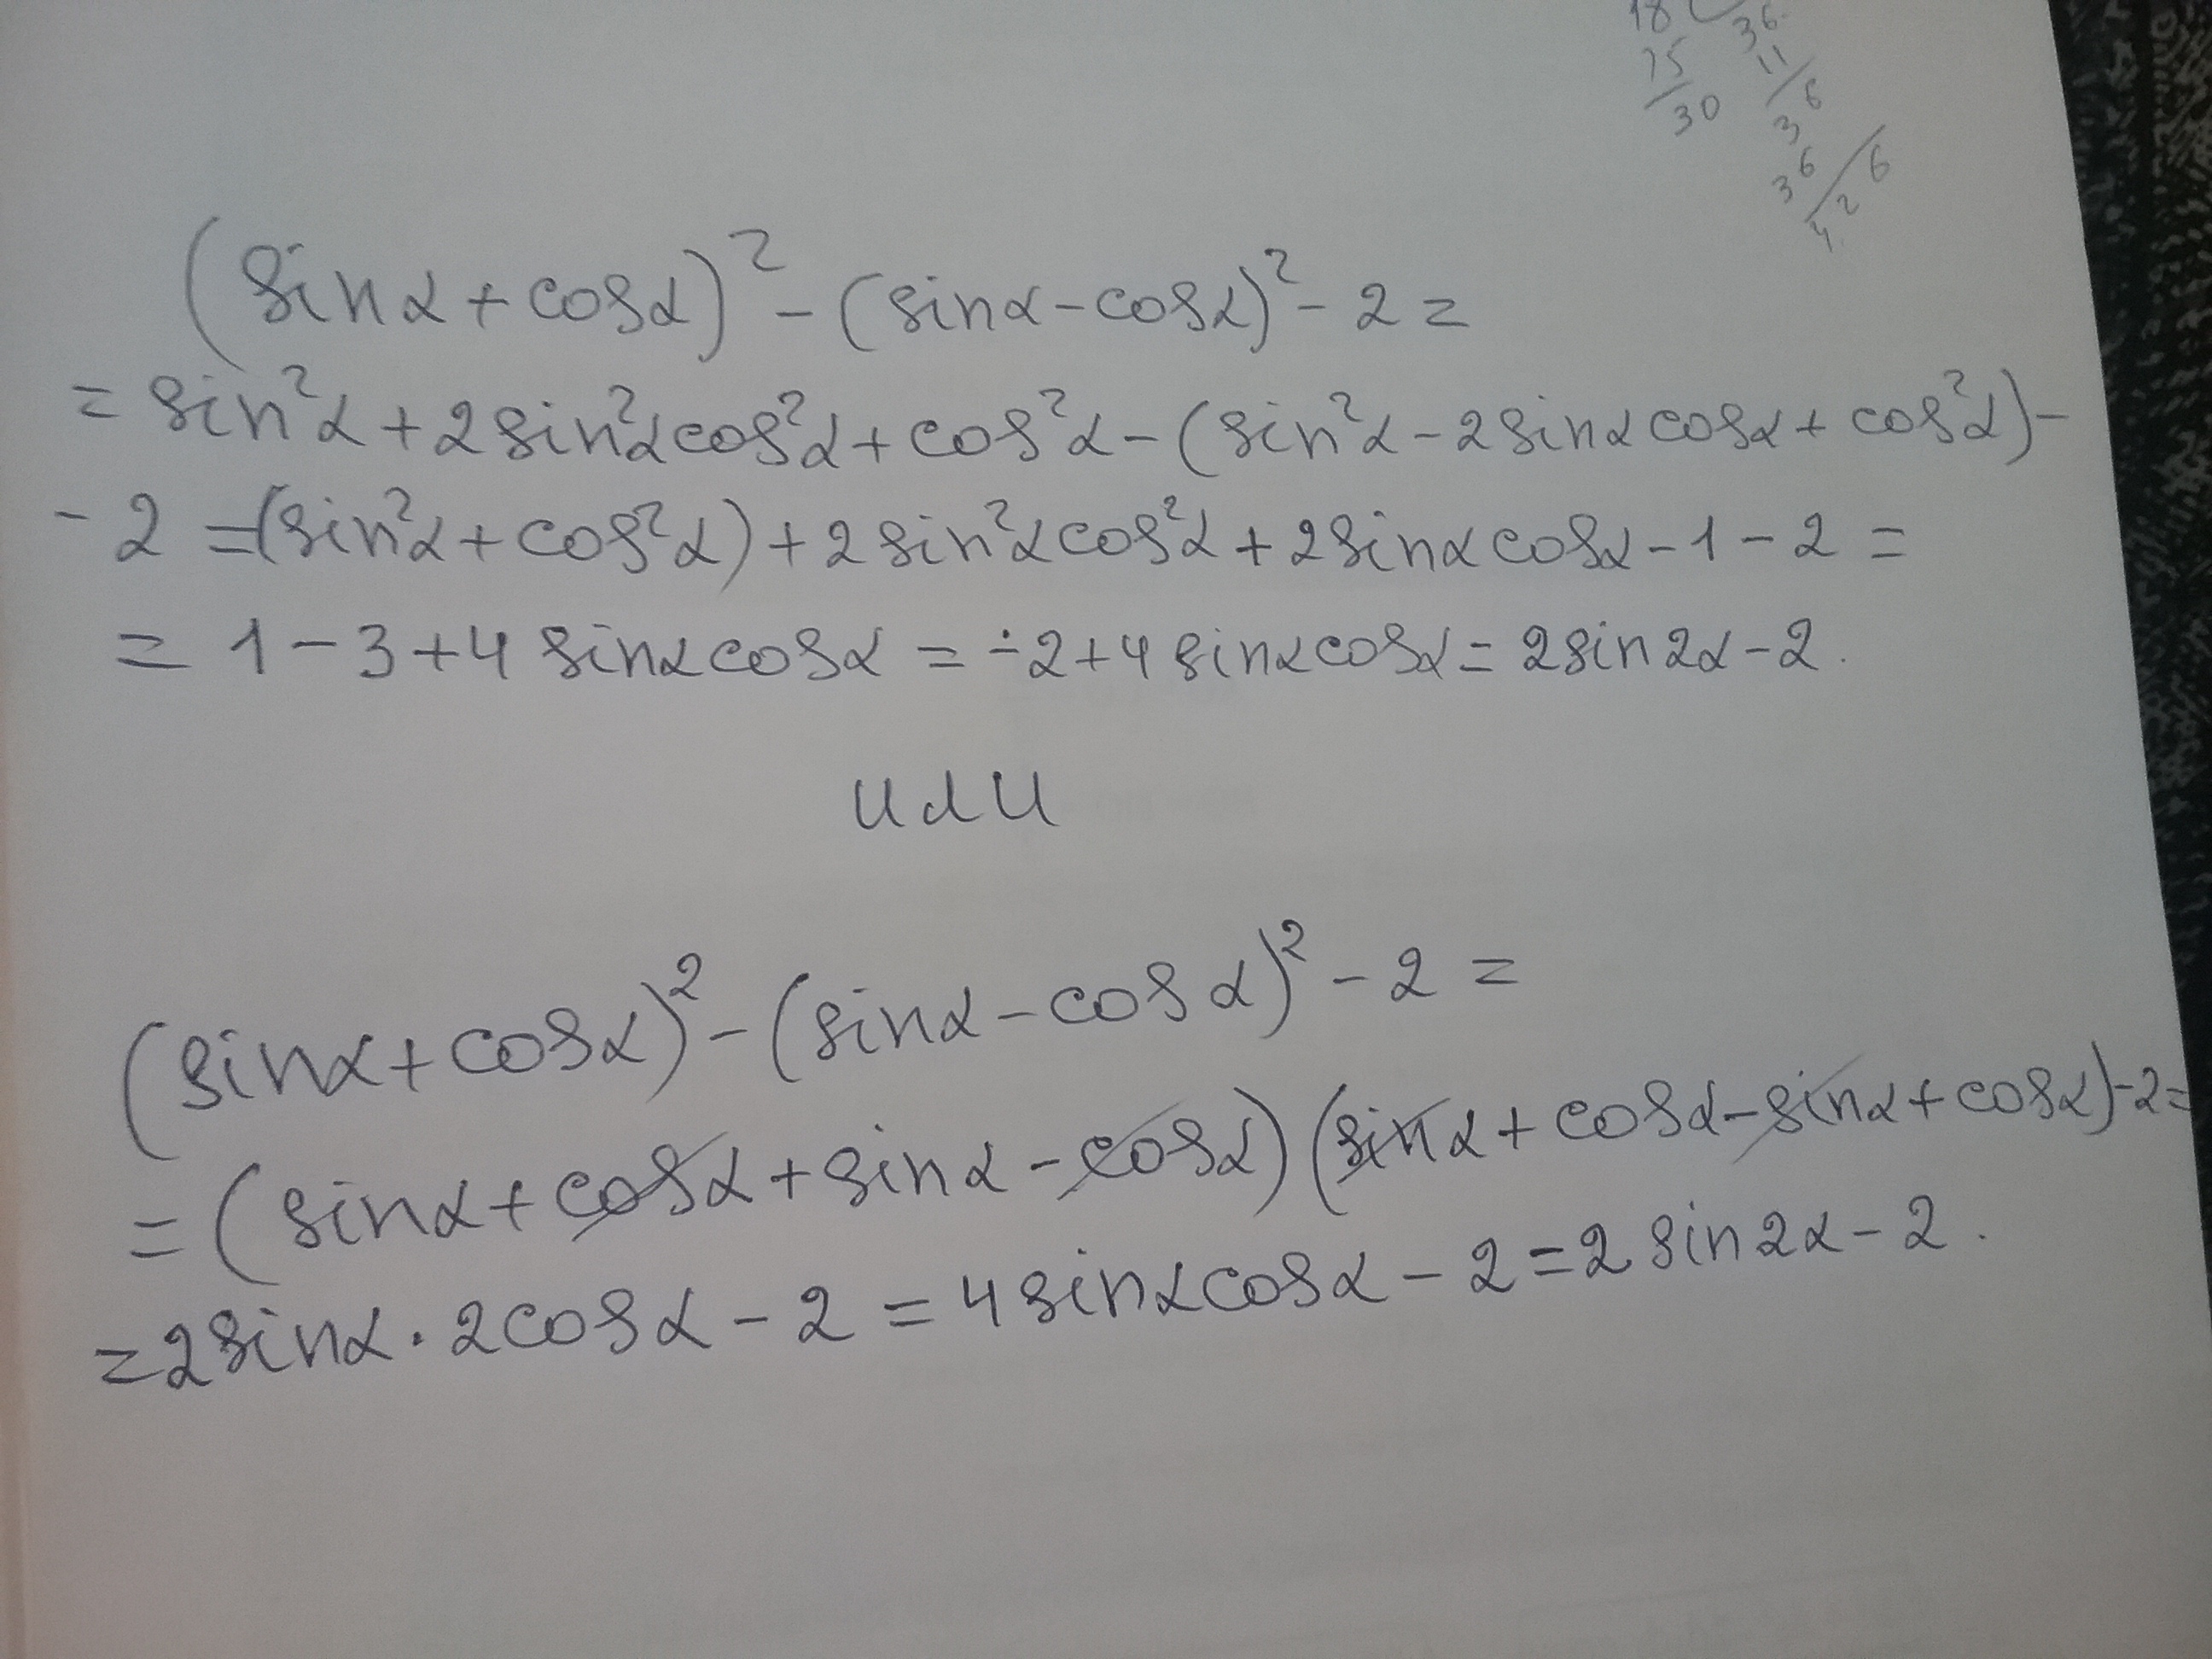 18 36
15 11
30 36
36 6
42
(sinα + cosα)² - (sinα - cosα)² - 2 =
= sin²α + 2sin²αcos²α + cos²α - (sin²α - 2sinαcosα + cos²α) -
- 2 = (sin²α + cos²α) + 2sin²αcos²α + 2sinαcosα - 1 - 2 =
= 1 - 3 + 4sinαcosα = -2 + 4sinαcosα = 2sin2α - 2.
или
(sinα + cosα)² - (sinα - cosα)² - 2 =
= (sinα + cosα + sinα - cosα)(sinα + cosα - sinα + cosα) - 2 =
= 2sinα · 2cosα - 2 = 4sinαcosα - 2 = 2sin2α - 2.